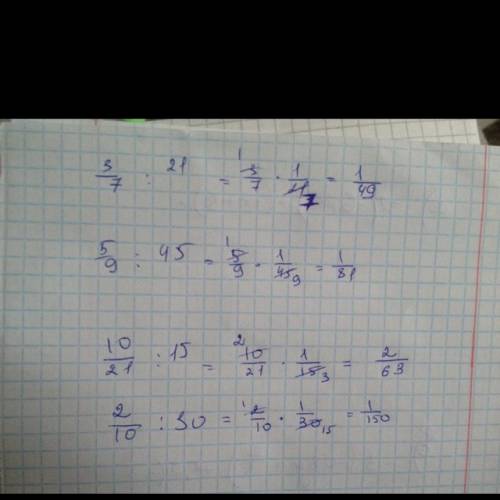 3/7 : 21 = 1 3/7 · 1/21 7 = 1/49
5/9 : 45 = 1 5/9 · 1/45 9 = 1/81
10/21 : 15 = 2 10/21 · 1/15 3 = 2/63
2/10 : 30 = 1 2/10 · 1/30 15 = 1/150